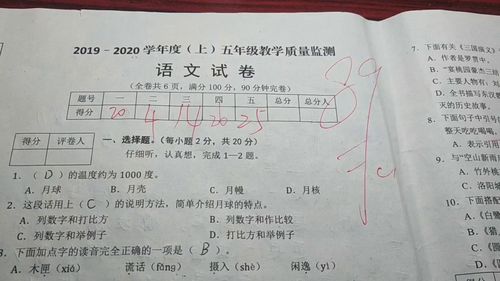 2019－2020学年度（上）五年级教学质量监测
语文试卷
（全卷共6页，满分100分，90分钟完卷）
题号 一 二 三 四 五 总分 总分人
得分 20 4 14 20 25
得分 评卷人
一、选择题。（每小题2分，共20分）
仔细听，认真想，完成1—2题。
1.（D）的温度约为1000度。
A．月球 B．月壳 C．月幔 D．月核
2．这段话用上（C）的说明方法，简单介绍月球的特点。
A．列数字和打比方 B．列数字和作比较
C．列数字和举例子 D．打比方和举例子
3．下面加点字的读音完全正确的一项是（B）。
A．木匣（xiá） 谎话（fǎng） 摄入（shè） 闲逸（yì）
7．下面有关《三国演义》
A．作者是罗贯中。
B．“宴桃园豪杰三结
C．主要人物有：刘
D．全书描写东汉
灭的历史故事。
8．下面句子中引号
整天吃吃喝喝。
A．表示引用
9．与“空山新雨
A．竹外桃
C．洛阳城
10．下面搭配
A．《白鹭
B．《猎
C．《圆
D．《